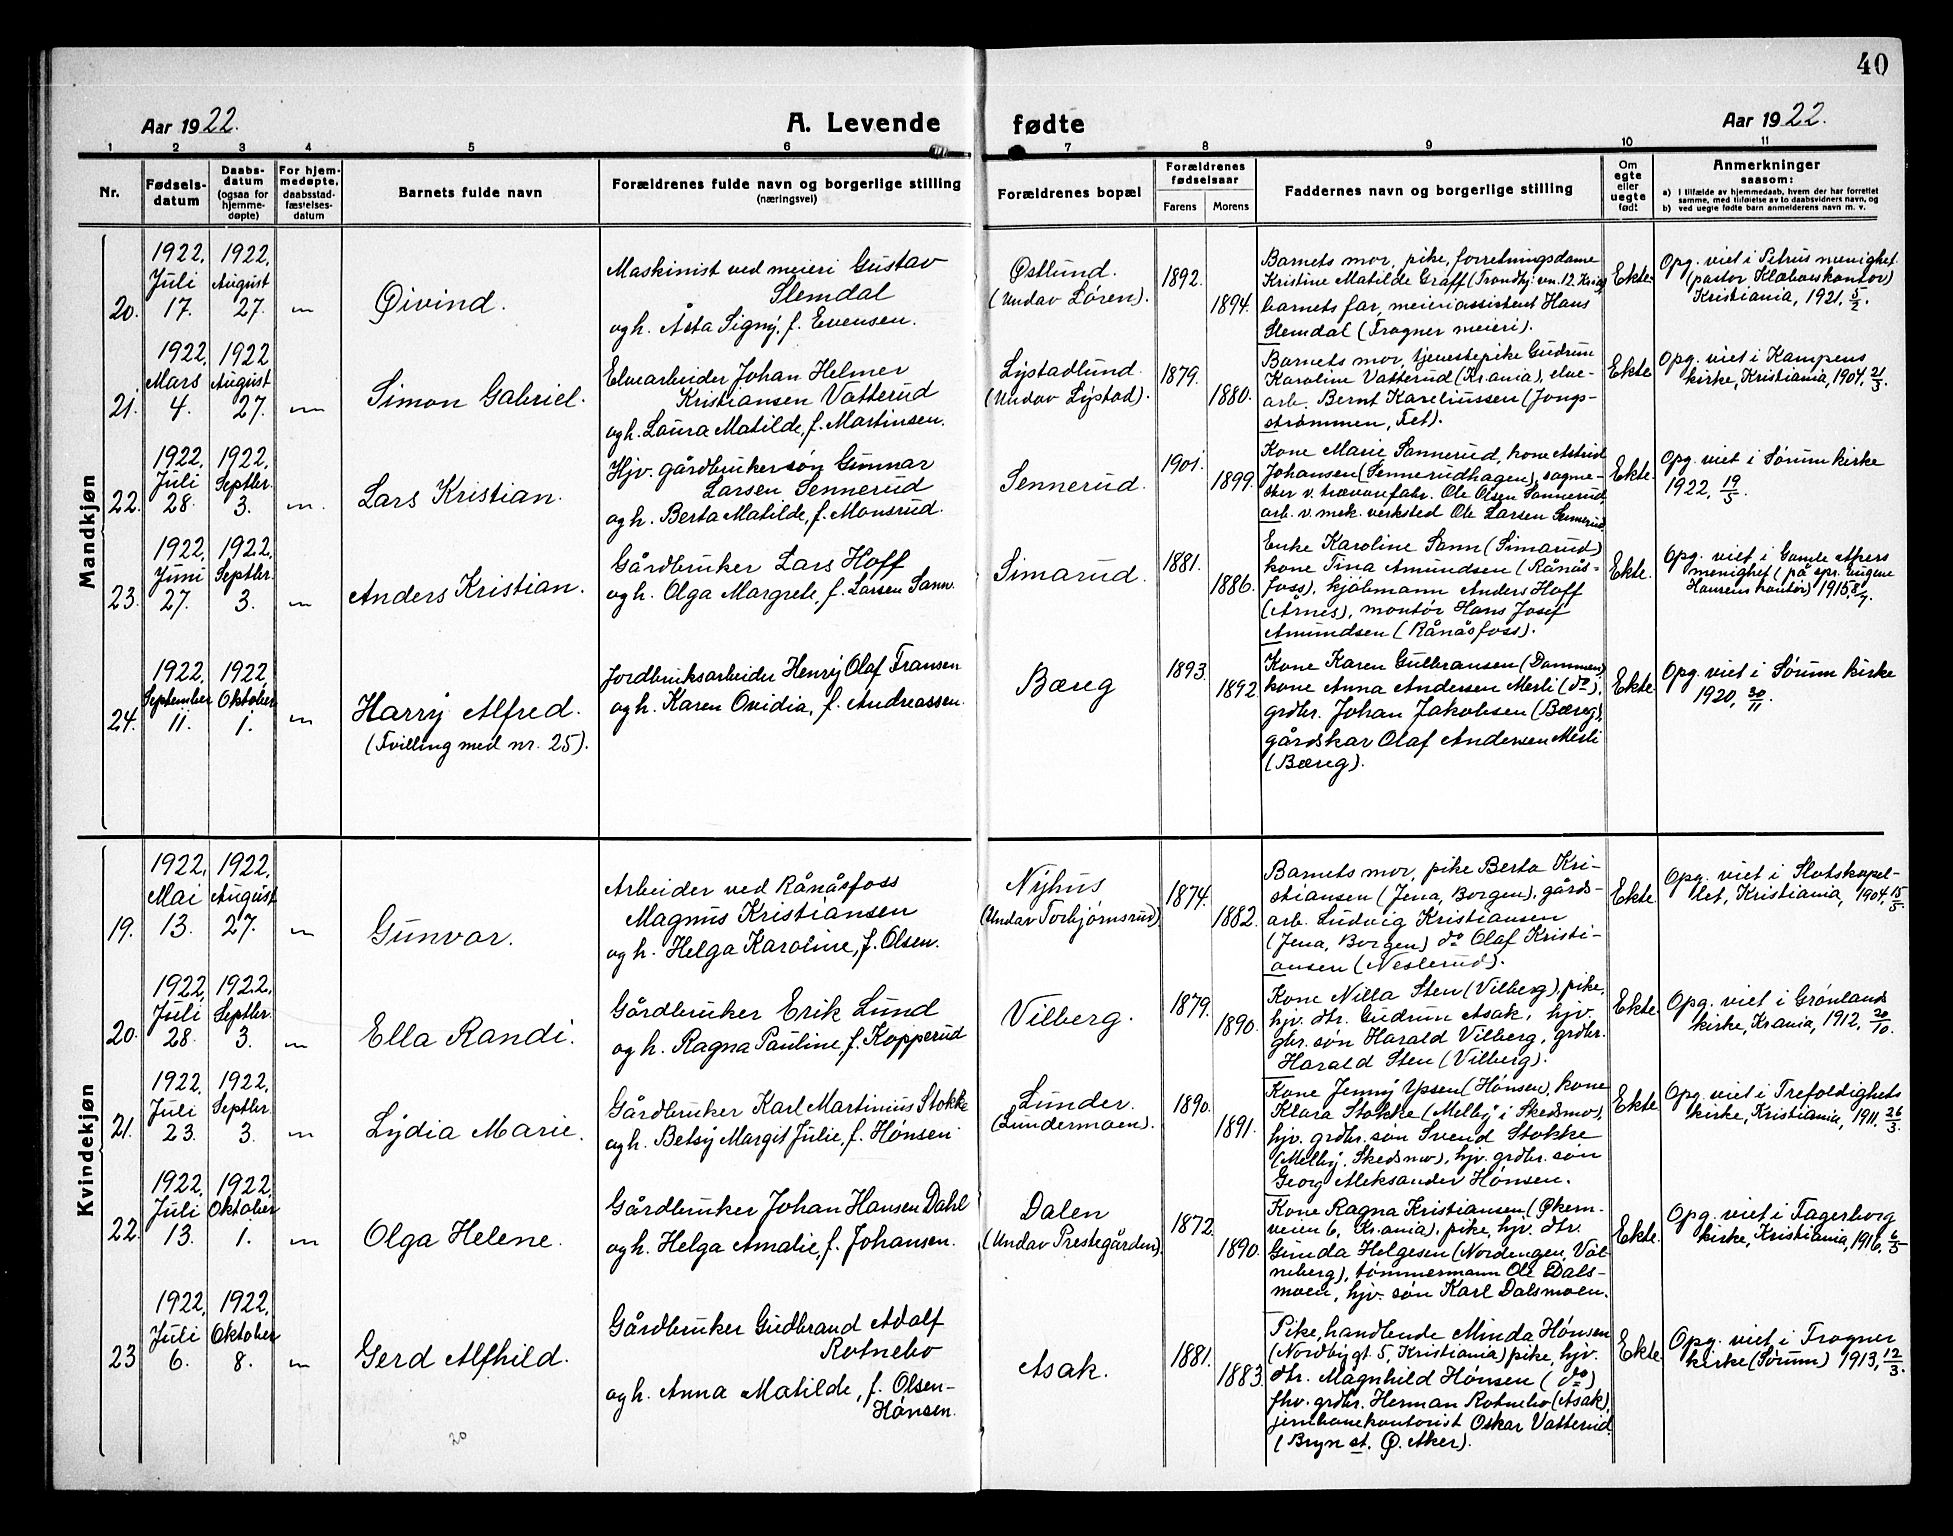 40
Aar 1922.
A. Levende
fødte
Aar 1922.
1 2 3 4 5 6 7 8 9 10 11
Nr.
Fødsels-
datum
Daabs-
datum
(ogsaa for
hjemme-
døpte)
For hjem-
medøpte,
daabsstad-
fæstelses-
datum
Barnets fulde navn
Forældrenes fulde navn og borgerlige stilling
(næringsvei)
Forældrenes bopæl
Forældrenes
fødselsaar
Farens
Morens
Faddernes navn og borgerlige stilling
Om
egte
eller
uegte
født
Anmerkninger
saasom:
a) I tilfælde av hjemmedaab, hvem der har forrettet
samme, med tilføielse av to daabsvidners navn, og
b) ved uegte fødte barn anmelderens navn m. v.
Mandkjøn
20.
1922.
Juli
17.
1922.
August
27.
Øivind.
Maskinist ved meieri Gustav
Slemdal
og h. Asta Signy, f. Evensen.
Østlund.
(Undav Løren).
1892.
1894.
Barnets mor, pike, forretningsdame
Kristine Matilde Graff (Trondhj.vn. 12, Kr.ia),
barnets far, meieriassistent Hans
Slemdal (Frogner meieri).
Ekte.
Opg. viet i Petrus menighet
(pastor Klæboes kontor)
Kristiania, 1921, 5/2.
21.
1922.
Mars
4.
1922
August
27.
Simon Gabriel.
Elvearbeider Johan Helmer
Kristiansen Vatterud
og h. Laura Matilde, f. Martinsen.
Lystadlund.
(Undav Lystad).
1879.
1880.
Barnets mor, tjenestepike Gudrun
Karoline Vatterud (Kr.ania), elve-
arb. Bernt Kareliussen (Jongs-
strømmen, Fet).
Ekte
Opg. viet i Kampens
kirke, Kristiania, 1904, 21/3.
22.
1922.
Juli
28.
1922.
Septbr.
3.
Lars Kristian.
Hjv. gårdbrukersøn Gunnar
Larsen Sennerud
og h. Berta Matilde, f. Monsrud.
Sennerud.
1901.
1899.
Kone Marie Sannerud, kone Astrid
Johansen (Sennerudhagen), sagme-
ster v. trævarefabr. Ole Olsen Sannerud,
arb. v. mek. verksted Ole Larsen Sennerud.
Ekte.
Opg. viet i Sørum kirke
1922, 19/5.
23.
1922.
Juni
27.
1922.
Septbr.
3.
Anders Kristian.
Gårdbruker Lars Hoff
og h. Olga Margrete, f. Larsen Sann.
Simarud.
1881.
1886.
Enke Karoline Sann (Simarud)
kone Tina Amundsen (Rånås-
foss), kjøbmann Anders Hoff
(Årnes), montør Hans Josef
Amundsen (Rånåsfoss).
Ekte.
Opg. viet i Gamle Akers
menighet (på spr. Eugene
Hansens kontor) 1915, 8/7.
24.
1922.
September
11.
1922.
Oktober
1.
Harry Alfred.
(Tvilling med nr. 25).
Jordbruksarbeider Henry Olaf Fransen
og h. Karen Ovidia, f. Andreassen.
Bæreg
1893.
1892.
Kone Karen Gulbransen (Dammen),
kone Anna Andersen Merli (do),
grdbr. Johan Jakobsen (Bæreg),
gårdskar Olaf Andersen Merli
(Bæreg).
Ekte.
Opg. viet i Sørum kirke
1920, 30/11.
Kvindekjøn
19.
1922.
Mai
13.
1922.
August
27.
Gunvor.
Arbeider ved Rånåsfoss
Magnus Kristiansen
og h. Helga Karoline, f. Olsen.
Nyhus
(Undav Torbjørnsrud).
1874.
1882.
Barnets mor, pike Berta Kri-
stiansen (Jena, Borgen), gårds-
arb. Ludvig Kristiansen
(Jena, Borgen) do Olaf Kristi-
ansen (Neslerud).
Ekte.
Opg. viet i Slotskapel-
let, Kristiania, 1904, 15/5.
20.
1922.
Juli
28.
1922.
Septbr.
3.
Ella Randi.
Gårdbruker Erik Lund
og h. Ragna Pauline, f. Kopperud
Vilberg.
1879.
1890.
Kone Nilla Sten (Vilberg), pike,
hjv. dtr. Gudrun Asak, hjv.
gbr. søn Harald Vilberg, grdbr.
Harald Sten (Vilberg).
Ekte.
Opg. viet i Grønlands
kirke, Kr.ania, 1912, 20/10.
21.
1922.
Juli
23.
1922.
Septbr.
3.
Lydia Marie.
Gårdbruker Karl Martinius Stokke
og h. Betsy Margit Julie, f. Hønsen.
Lunder.
(Lundermoen).
1890.
1891.
Kone Jenny Ypsen (Hønsen), kone
Klara Stokke (Melby i Skedsmo),
hjv. grdbr. søn Svend Stokke
(Melby, Skedsmo), hjv. grdbr. søn
Georg Aleksander Hønsen.
Ekte.
Opg. viet i Trefoldighets
kirke, Kristiania, 1911, 26/3.
22.
1922.
Juli
13.
1922.
Oktober
1.
Olga Helene.
Gårdbruker Johan Hansen Dahl
og h. Helga Amalie, f. Johansen.
Dalen
(Undav Prestegården).
1872.
1890.
Kone Ragna Kristiansen (Økern-
veien 6, Kr.ania), pike, hjv. dtr.
Gunda Helgesen (Nordengen, Val-
neberg), tømmermann Ole Dals-
moen, hjv. søn Karl Dalsmoen.
Ekte.
Opg. viet i Fagerborg
kirke, Kristiania, 1916, 6/5
23
1922.
Juli
6.
1922.
Oktober
8.
Gerd Alfhild.
Gårdbruker Gudbrand Adolf
Rotnebo
og h. Anna Matilde, f. Olsen-
Hønsen.
Asak.
1881.
1883.
Pike, handlende Minda Hønsen
(Nordbygt. 5, Kristiania) pike, hjv.
dtr. Magnhild Hønsen (do)
fhv. grdbr. Herman Rotnebo (Asak),
jernbanekontorist Oskar Vatterud
(Bryn st. Ø. Aker).
Ekte.
Opg. viet i Frogner
kirke (Sørum) 1913, 12/3.
20